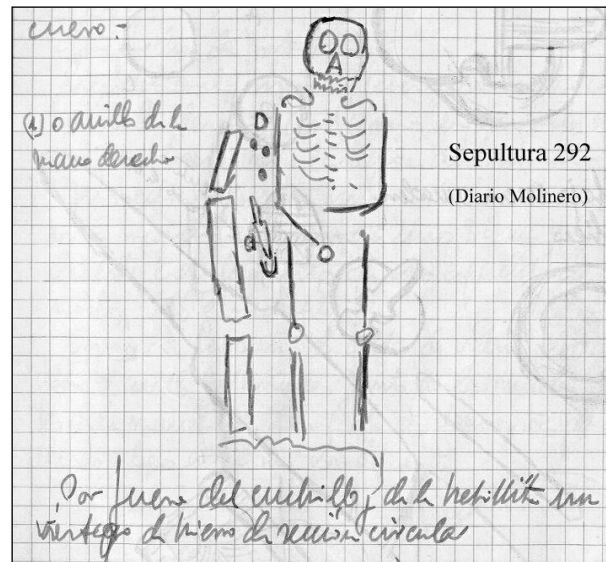 cuero:-
(1) o anillo de la
mano derecha
Sepultura 292
(Diario Molinero)
Por fuera del cuchillo y de la hebillita un
de hierro de sección circular